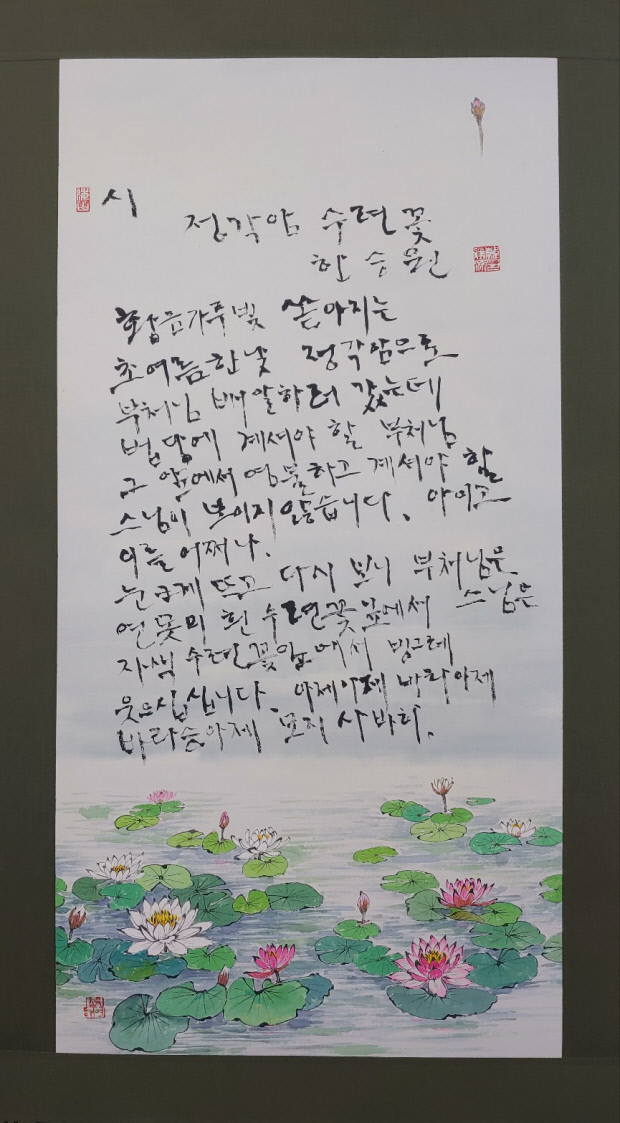 시
정각암 수련꽃
한승원
황금가루빛 쏟아지는
초여름한낮 정각암으로
부처님 배알하러 갔는데
법당에 계셔야 할 부처님
그 앞에서 염불하고 계셔야 할
스님이 보이지 않습니다. 아이고
이를 어쩌나.
눈크게 뜨고 다시 보니 부처님은
연못의 흰 수련꽃앞에서 스님은
자색 수련꽃앞에서 빙그레
웃으십니다. 아제아제 바라아제
바라승아제 모지 사바하.